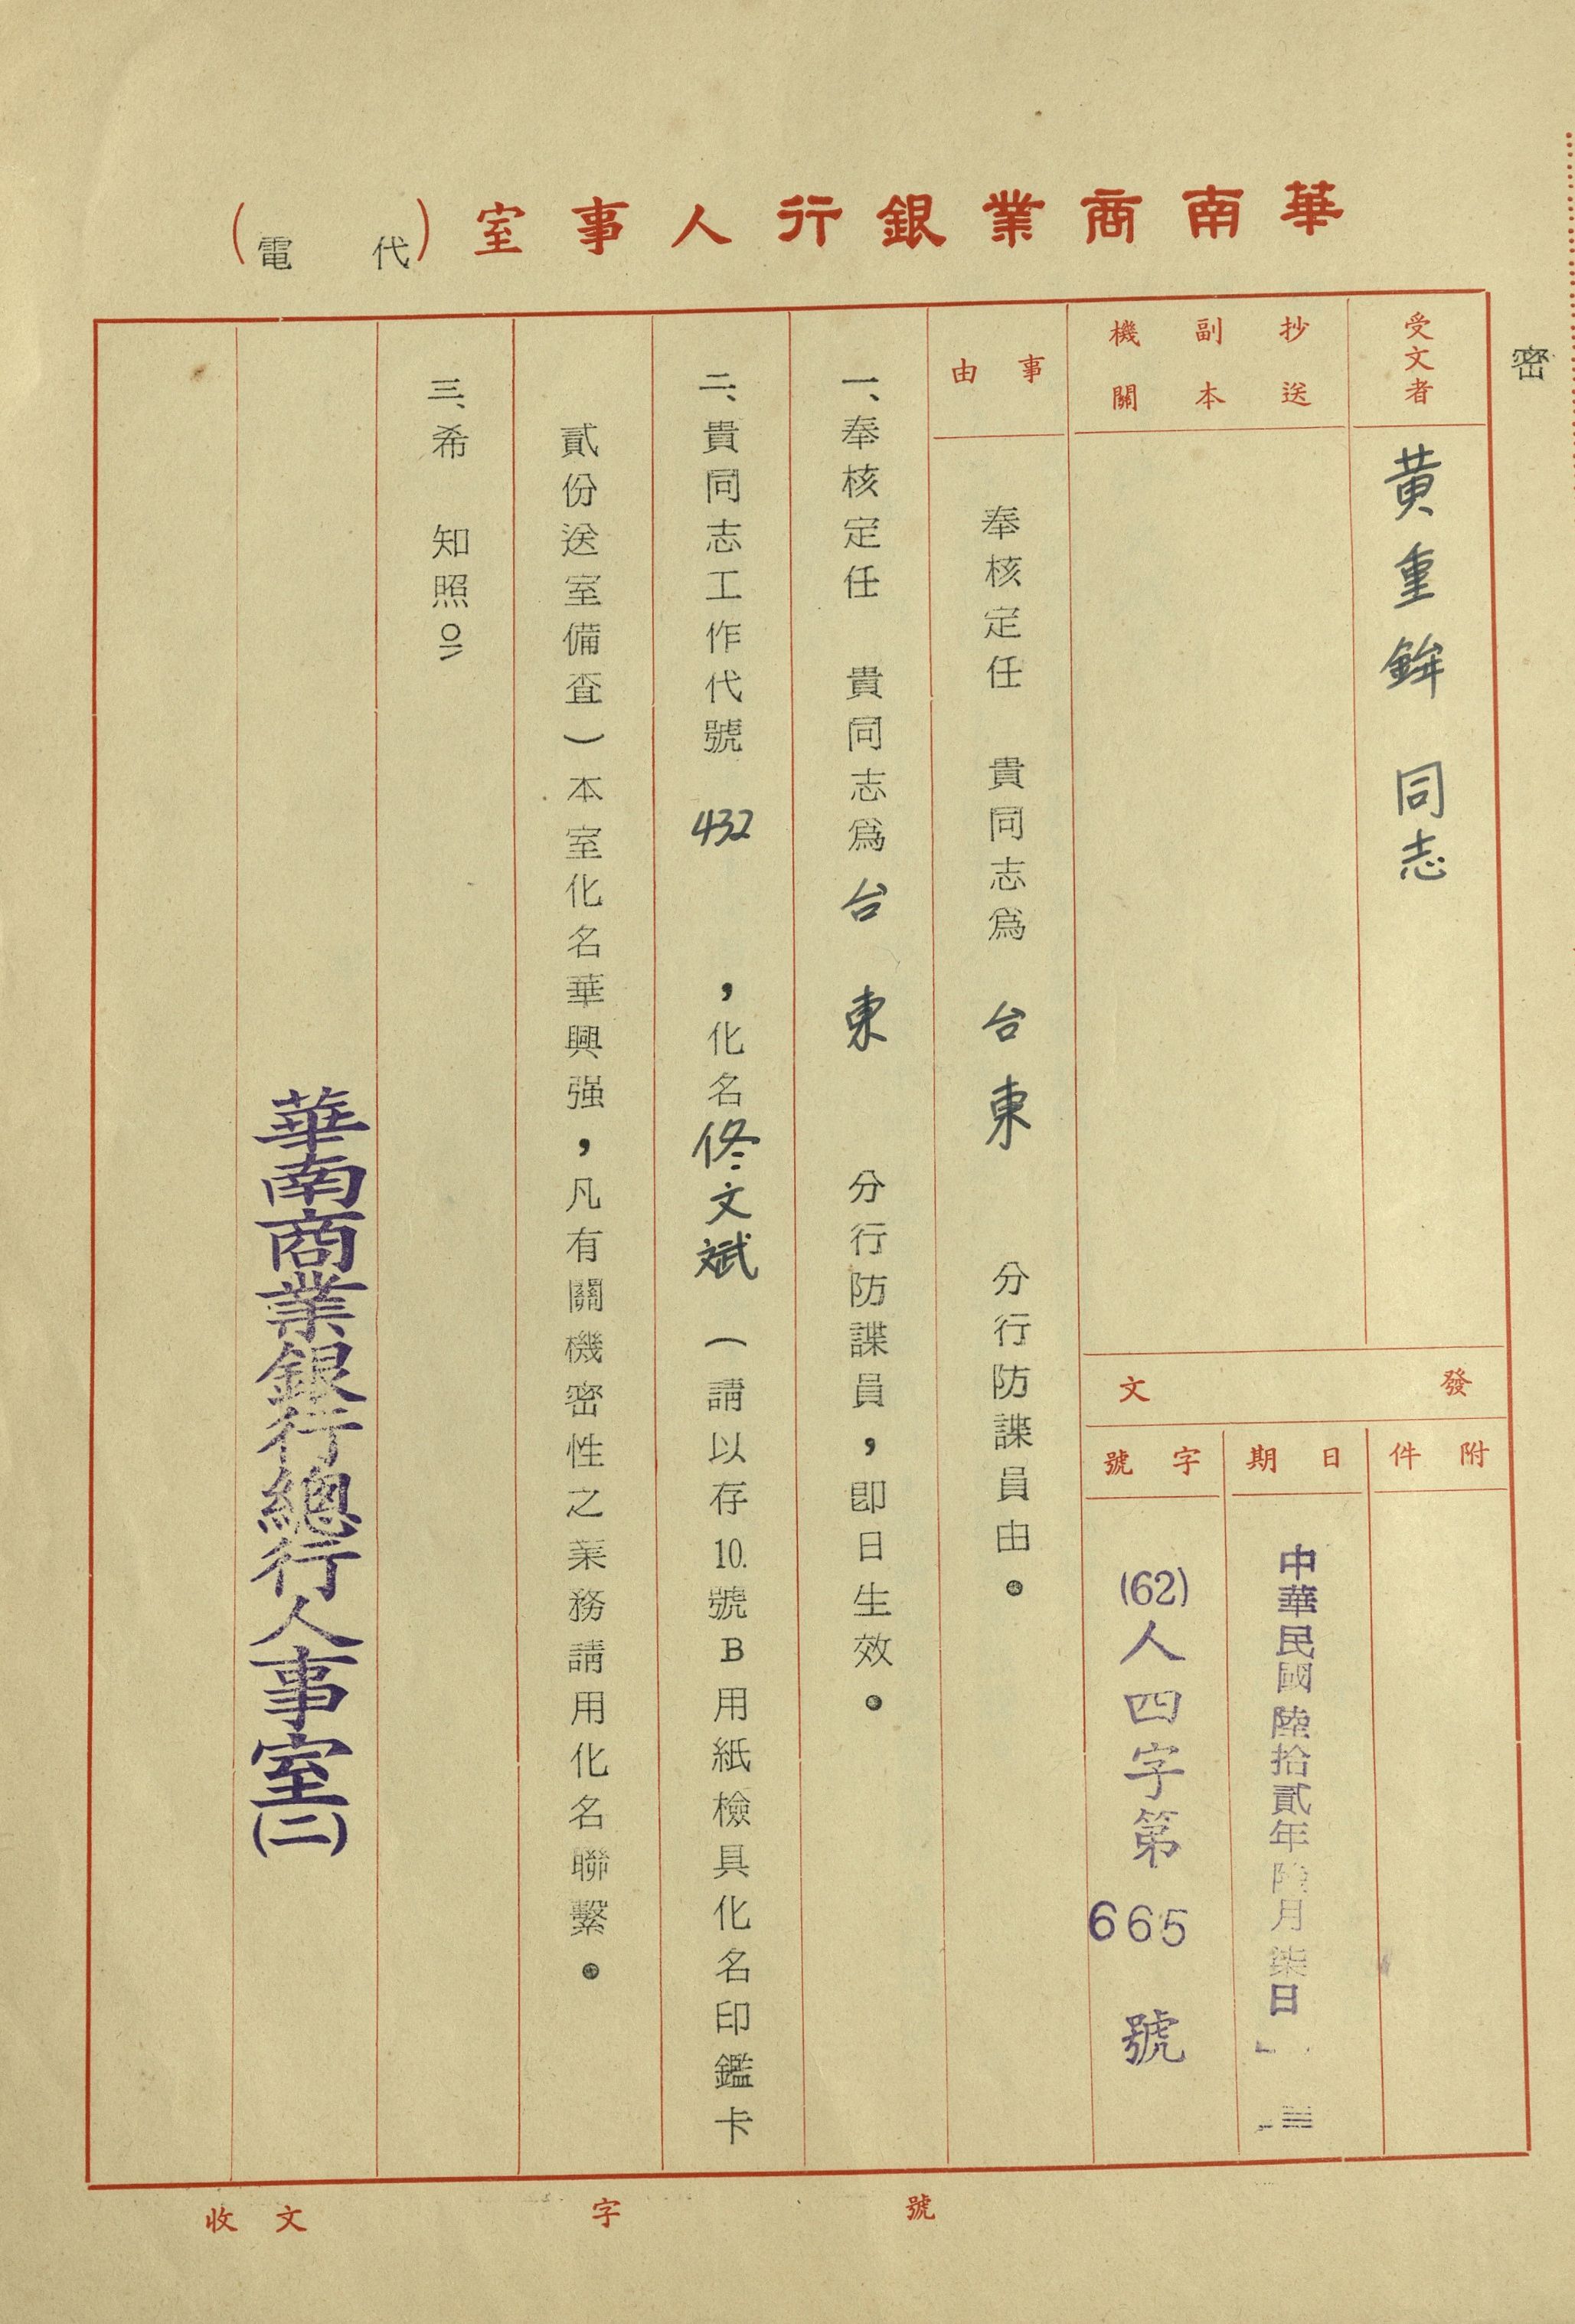 密
華南商業銀行人事室(代電)
受文者
黃重鉾 同志
抄送
副本
機關
發文
附件
日期
中華民國陸拾貳年陸月柒日
字號
(62)人四字第665號
事由
奉核定任 貴同志為 台東 分行防諜員由。
一、奉核定任 貴同志為台東 分行防諜員，即日生效。
二、貴同志工作代號 432 ，化名佟文斌 (請以存10.號B用紙檢具化名印鑑卡
貳份送室備查)本室化名華興强，凡有關機密性之業務請用化名聯繫。
三、希 知照
華南商業銀行總行人事室(二)
收文 字 號